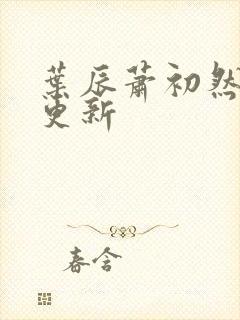 葉辰蕭初然
更新
春含